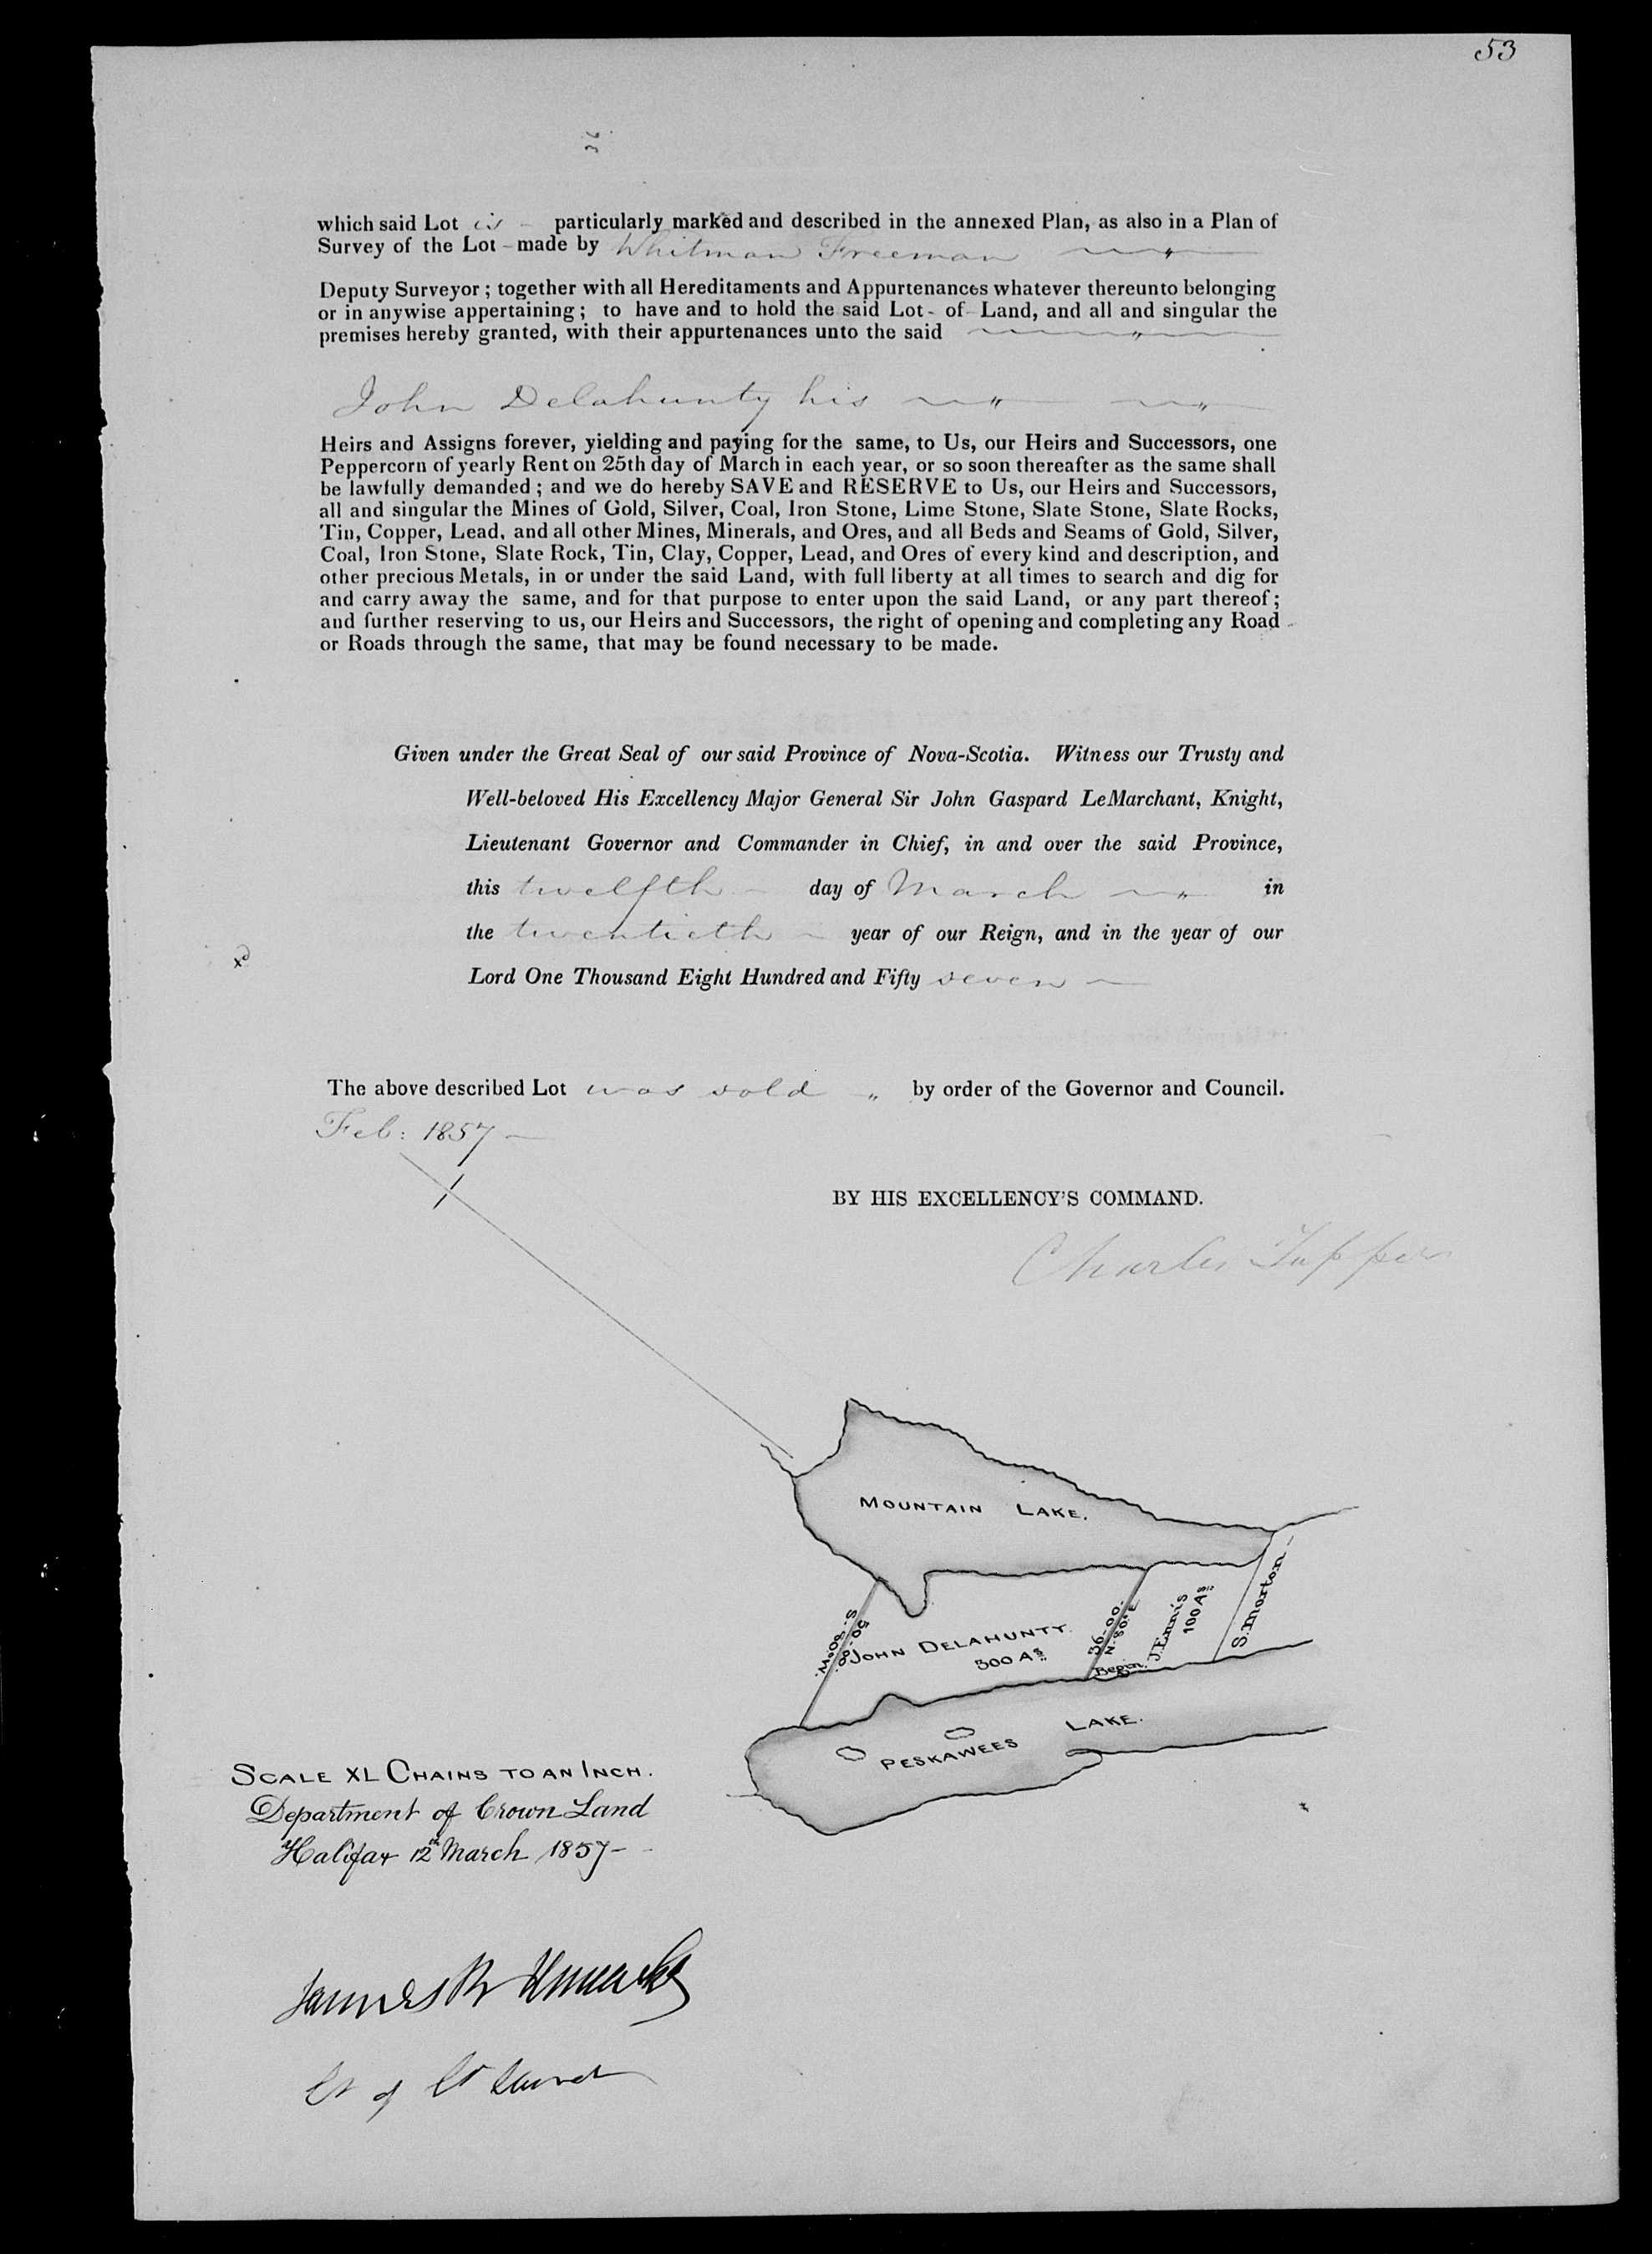 53
which said Lot is particularly marked and described in the annexed Plan, as also in a Plan of
Survey of the Lot made by Whitman Freeman
Deputy Surveyor; together with all Hereditaments and Appurtenances whatever thereunto belonging
or in anywise appertaining; to have and to hold the said Lot of Land, and all and singular the
premises hereby granted, with their appurtenances unto the said
John Delahunty his
Heirs and Assigns forever, yielding and paying for the same, to Us, our Heirs and Successors, one
Peppercorn of yearly Rent on 25th day of March in each year, or so soon thereafter as the same shall
be lawfully demanded; and we do hereby SAVE and RESERVE to Us, our Heirs and Successors,
all and singular the Mines of Gold, Silver, Coal, Iron Stone, Lime Stone, Slate Stone, Slate Rocks,
Tin, Copper, Lead, and all other Mines, Minerals, and Ores, and all Beds and Seams of Gold, Silver,
Coal, Iron Stone, Slate Rock, Tin, Clay, Copper, Lead, and Ores of every kind and description, and
other precious Metals, in or under the said Land, with full liberty at all times to search and dig for
and carry away the same, and for that purpose to enter upon the said Land, or any part thereof;
and further reserving to us, our Heirs and Successors, the right of opening and completing any Road
or Roads through the same, that may be found necessary to be made.
Given under the Great Seal of our said Province of Nova-Scotia. Witness our Trusty and
Well-beloved His Excellency Major General Sir John Gaspard LeMarchant, Knight,
Lieutenant Governor and Commander in Chief, in and over the said Province,
this twelfth day of March in
the twentieth year of our Reign, and in the year of our
Lord One Thousand Eight Hundred and Fifty seven
The above described Lot was sold by order of the Governor and Council.
Feb: 1857
BY HIS EXCELLENCY'S COMMAND.
Charles Tupper
MOUNTAIN LAKE.
S. 80° W.
50-00
JOHN DELAHUNTY.
300 As
36-00.
N. 80° E
Begin.
J. Ennis
100 As
S. Morton
PESKAWEES LAKE.
SCALE XL CHAINS TO AN INCH.
Department of Crown Land
Halifax 12th March 1857
James B Uniacke